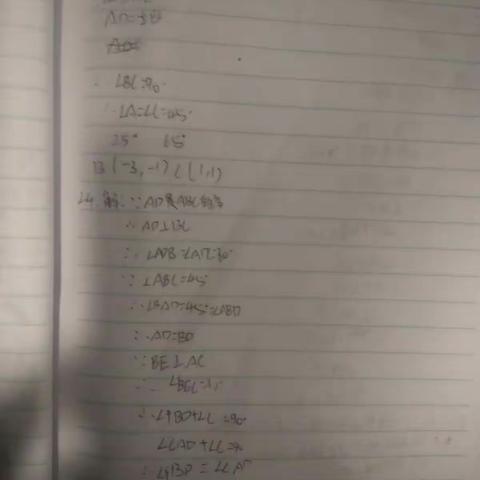 ∠BC=90°
∴∠A=∠C=45°
25° 65°
B(-3,-1) C(1,1)
24.解:∵AD是ABC的高
∴AD⊥BC
∴∠ADB=∠ADC=90°
∵∠ABC=45°
∴∠BAD=45°=∠ABD
∴AD=BD
∵BE⊥AC
∴∠BEC=90°
∴∠FBD+∠C=90°
∠CAD+∠C=90°
∴∠FBD=∠CAD